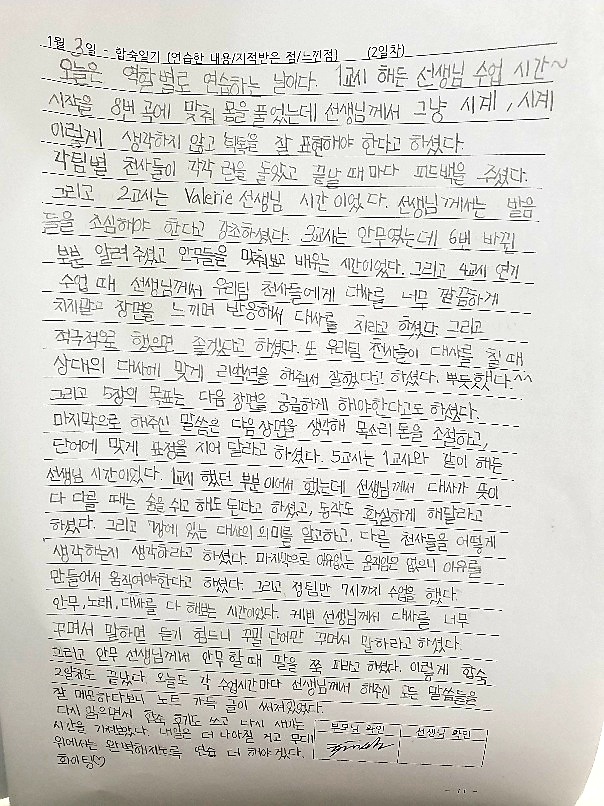 1월 3일 - 합숙일기 (연습한 내용/지적받은 점/느낀점) (2일차)
오늘은 역할별로 연습하는 날이다. 1교시 해든 선생님 수업 시간~
시작을 8번 곡에 맞춰 몸을 풀었는데 선생님께서 그냥 시계, 시계
이렇게 생각하지 않고 틱톡을 잘 표현해야 한다고 하셨다.
각팀별 천사들이 각각 런을 돌았고 끝날 때마다 피드백을 주셨다.
그리고 2교시는 Valerie 선생님 시간이었다. 선생님께서는 발음
들을 조심해야 한다고 강조하셨다. 3교시는 안무였는데 6번 바뀐
부분 알려주셨고 안무들을 맞춰보고 배우는 시간이었다. 그리고 4교시 연기
수업 때 선생님께서 우리팀 천사들에게 대사를 너무 깔끔하게
치지말고 장면을 느끼며 반응해서 대사를 치라고 하셨다 그리고
적극적으로 했으면 좋겠다고 하셨다. 또 우리팀 천사들이 대사를 칠 때
상대의 대사에 맞게 리액션을 해줘서 잘했다고 하셨다. 뿌듯했다.^^
그리고 5장의 목표는 다음 장면을 궁금하게 해야한다고도 하셨다.
마지막으로 해주신 말씀은 다음 장면을 생각해 목소리 톤을 조절하고,
단어에 맞게 표정을 지어 달라고 하셨다. 5교시는 1교시와 같이 해든
선생님 시간이었다. 1교시 했던 부분 이어서 했는데 선생님께서 대사가 뜻이
다 다를 때는 숨을 쉬고 해도 된다고 하셨고, 동작도 확실하게 해달라고
하셨다. 그리고 7장에 있는 대사의 의미를 알고하고, 다른 천사들을 어떻게
생각하는지 생각하라고 하셨다. 마지막으로 이유없는 움직임은 없으니 이유를
만들어서 움직여야한다고 하셨다. 그리고 정팀만 7시까지 수업을 했다.
안무, 노래, 대사를 다 해보는 시간이었다. 케빈 선생님께서 대사를 너무
꾸며서 말하면 듣기 힘드니 꾸밀 단어만 꾸며서 말하라고 하셨다.
그리고 안무 선생님께서 안무 할 때 말을 쭉 펴라고 하셨다. 이렇게 합숙
2일차도 끝났다 오늘도 각 수업시간마다 선생님께서 해주신 모든 말씀들을
잘 메모하다보니 노트 가득 글이 써져있었다.
다시 읽으면서 합숙 후기도 쓰고 다시 새기는
시간을 가져보았다. 내일은 더 나아질 거고 무대
위에서는 완벽해지도록 연습 더 해야겠다.
화이팅♡
부모님 확인 선생님 확인